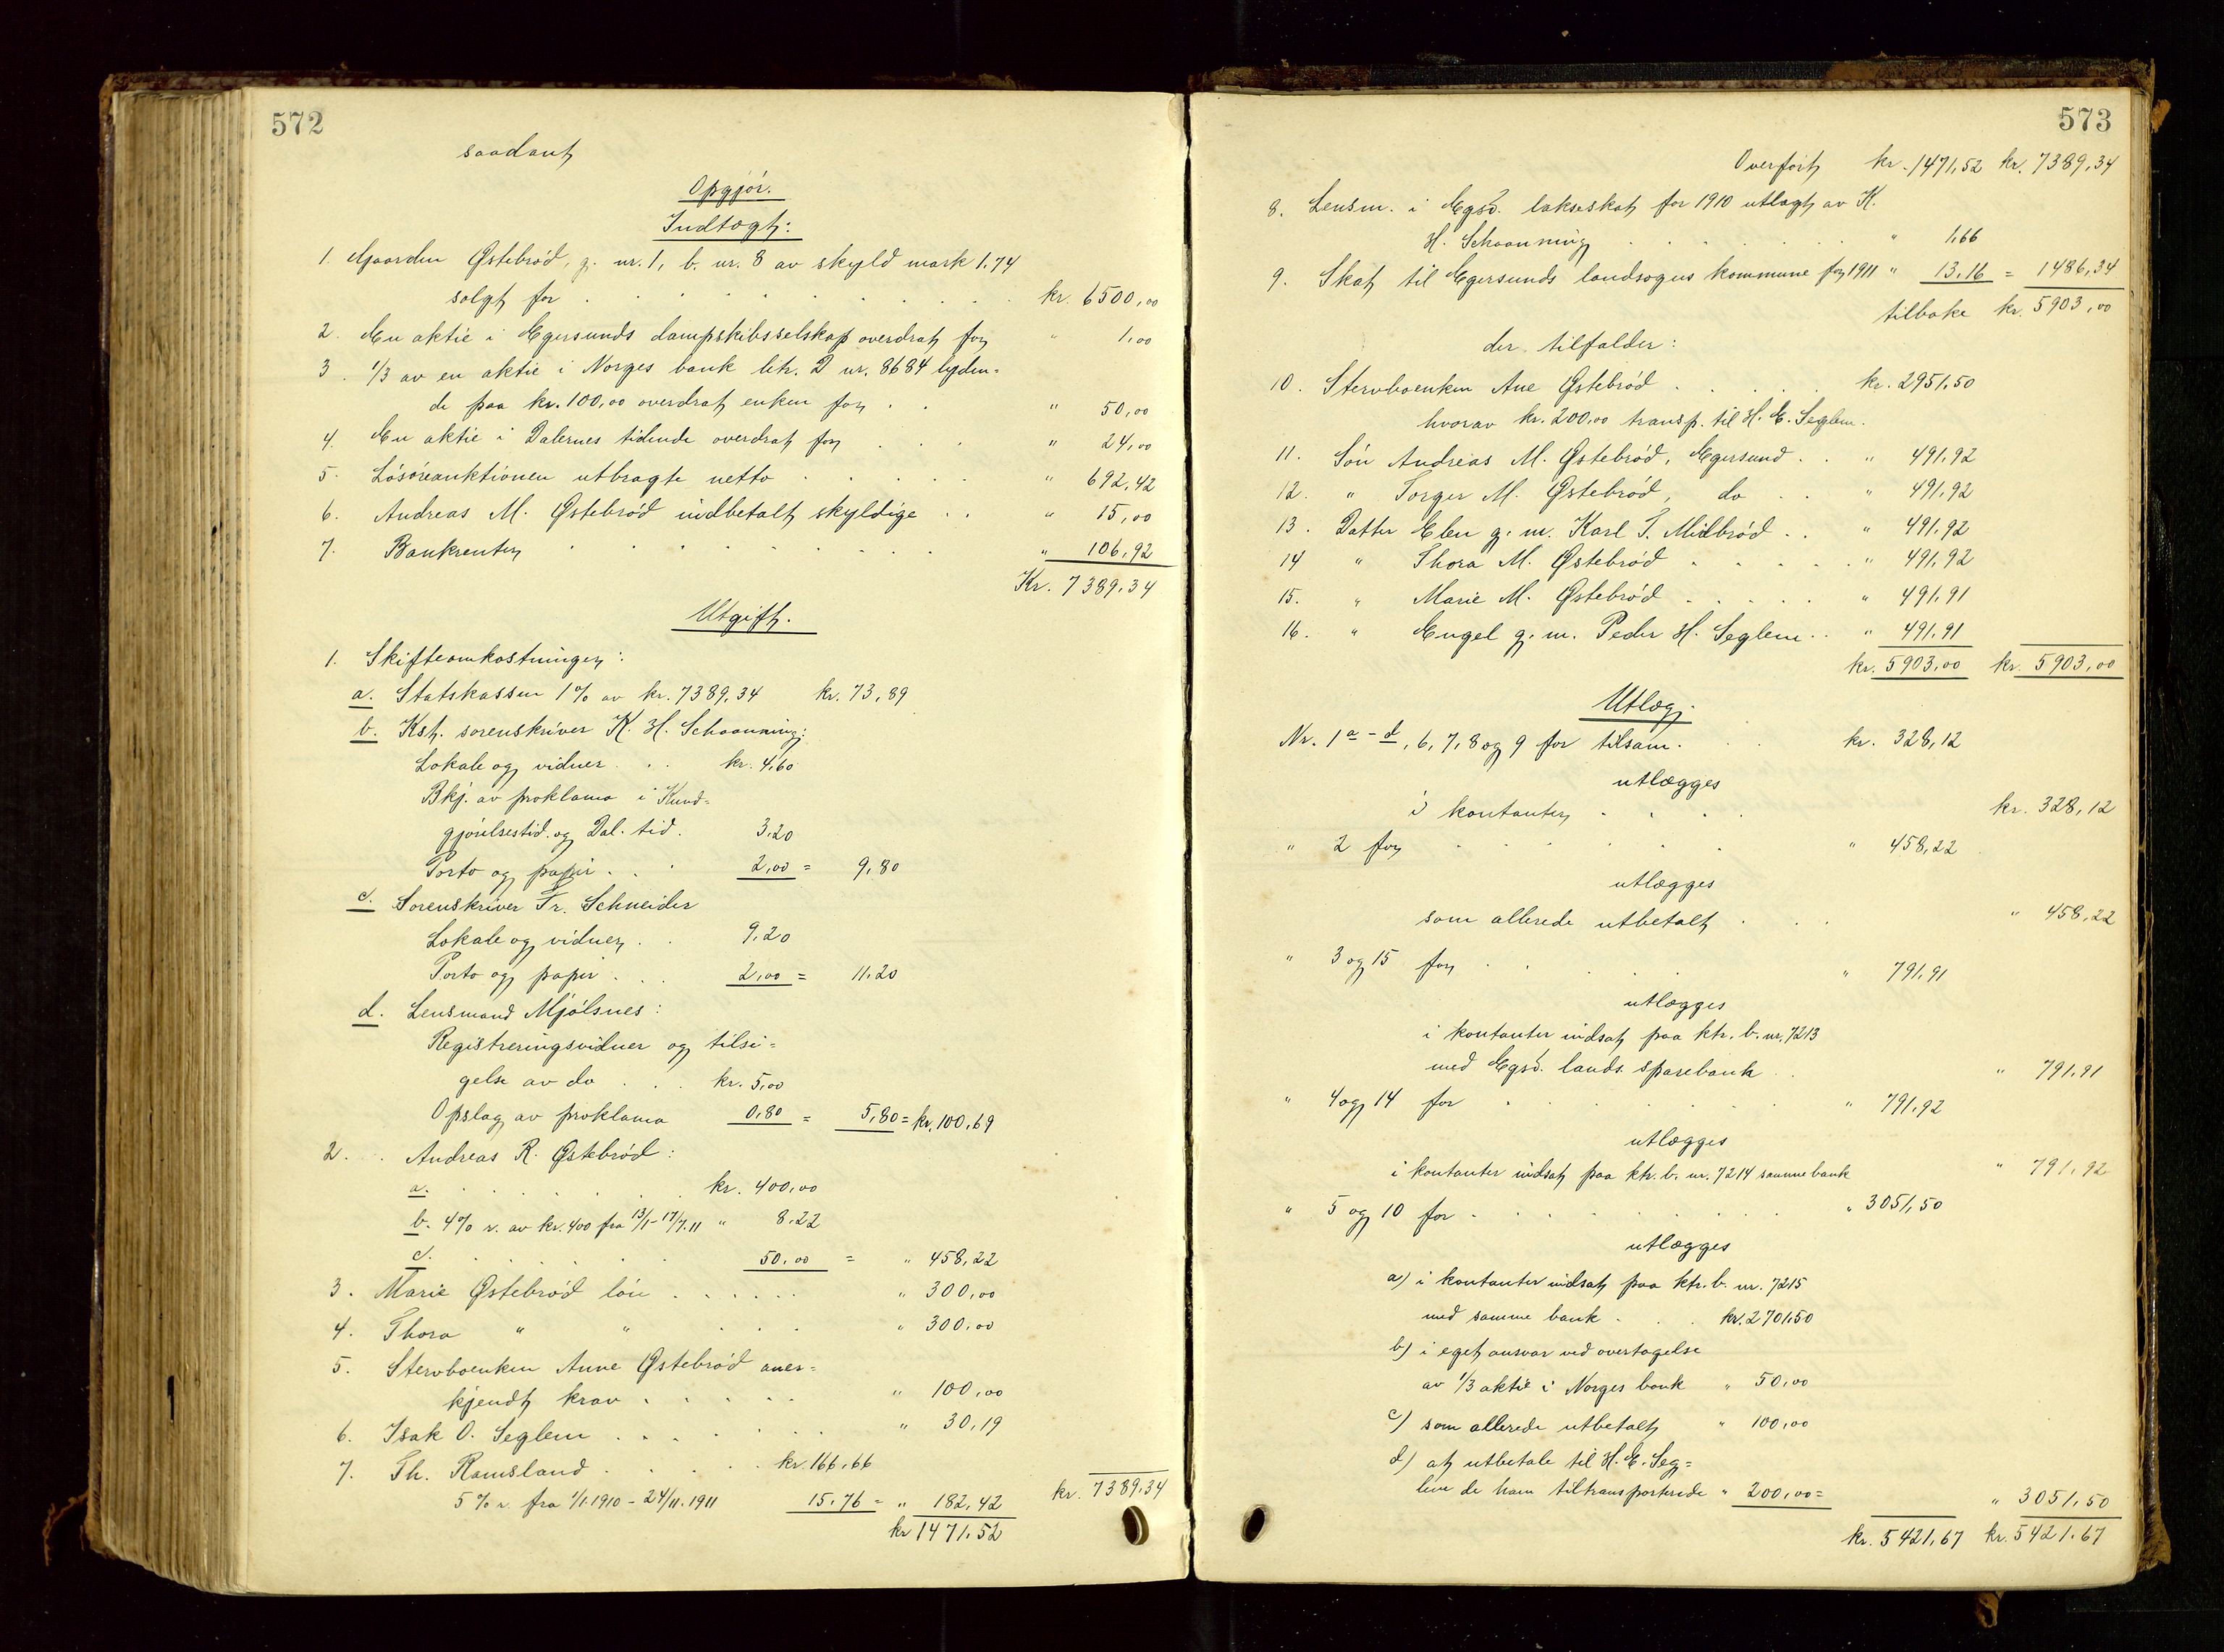 572
saadant
Opgjør.
Indtægt:
1. Gaarden Østebrød, g. nr. 1, b. nr. 8 av skyld mark 1,74
solgt for . . . . kr. 6500,00
2. En aktie i Egersunds dampskibsselskap overdrat for " 1,00
3. 1/3 av en aktie i Norges bank litr. D nr. 8684 lyden=
de paa kr. 100,00 overdrat enken for . . " 50,00
4. En aktie i Dalernes tidende overdrat for . . . " 24,00
5. Løsøreauktionen utbragte netto . . . . . " 692,42
6. Andreas M. Østebrød indbetalt skyldige . . " 15,00
7. Bankrenter . . . . " 106,92
Kr. 7389,34
Utgift.
1. Skifteomkostninger:
a. Statskassen 1% av kr. 7389,34 kr. 73,89
b. Kst. sorenskriver K. H. Schaanning:
Lokale og vidner . . . kr. 4,60
Bkj. av proklama i Kund=
gjørelsestid. og Dal. tid. 3,20
Porto og papir . . . 2,00 = 9,80
c. Sorenskriver Fr. Schneider
Lokale og vidner . . 9,20
Porto og papir . . . 2,00 = 11,20
d. Lensmand Mjølsnes:
Registreringsvidner og tilsi=
gelse av do . . . kr. 5,00
Opslag av proklama 0,80 = 5,80 = kr. 100,69
2. Andreas R. Østebrød:
a. . . . . kr. 400,00
b. 4% r. av kr. 400 fra 13/1-17/7.11 " 8,22
c. . . . . 50,00 = " 458,22
3. Marie Østebrød løn . . . . . . " 300,00
4. Thora " " . . . " 300,00
5. Stervboenken Anne Østebrød aner=
kjendt krav . . . . . " 100,00
6. Isak O. Seglem . . . . . . " 30,19
7. Th. Ramsland . . . . . kr. 166,66
5% r. fra 1/1.1910 - 24/11.1911 15,76 = " 182,42 kr. 7389,34
kr 1471,52
573
Overført kr. 1471,52 kr. 7389,34
8. Lensm. i Egsd. lakseskat for 1910 utlagt av K.
H. Schaanning . . . . " 1,66
9. Skat til Egersunds landsogns kommune for 1911 " 13,16 = 1486,34
tilbake kr. 5903,00
der tilfalder:
10. Stervboenken Ane Østebrød . . . . . kr. 2951,50
hvorav kr. 200,00 transp. til H. E. Seglem.
11. Søn Andreas M. Østebrød, Egersund . . " 491,92
12. " Torger M. Østebrød, do . . " 491,92
13. Datter Elen g. m. Karl T. Midbrød . . " 491,92
14 " Thora M. Østebrød . . . . . " 491,92
15. " Marie M. Østebrød . . . . . " 491,91
16. " Engel g. m. Peder H. Seglem . . " 491,91
kr. 5903,00 kr. 5903,00
Utlæg.
Nr. 1 a - d, 6, 7, 8 og 9 for tilsam. . . kr. 328,12
utlægges
i kontanter . . . . kr. 328,12
" 2 for . . . . . . " 458,22
utlægges
som allerede utbetalt . . . " 458,22
" 3 og 15 for . . . . . " 791,91
utlægges
i kontanter indsat paa ktr. b. nr. 7213
med Egsd. lands. sparebank . . " 791,91
" 4 og 14 for . . . . . . " 791,92
utlægges
i kontanter indsat paa ktr. b. nr. 7214 samme bank " 791,92
" 5 og 10 for . . . . . . . . " 3051,50
utlægges
a) i kontanter indsat paa ktr. b. nr. 7215
med samme bank . . . kr. 2701,50
b) i eget ansvar ved overtagelse
av 1/3 aktie i Norges bank " 50,00
c) som allerede utbetalt " 100,00
d) at utbetale til H. E. Seg=
lem de ham tiltransporterede " 200,00 = " 3051,50
kr. 5421,67 kr. 5421,67